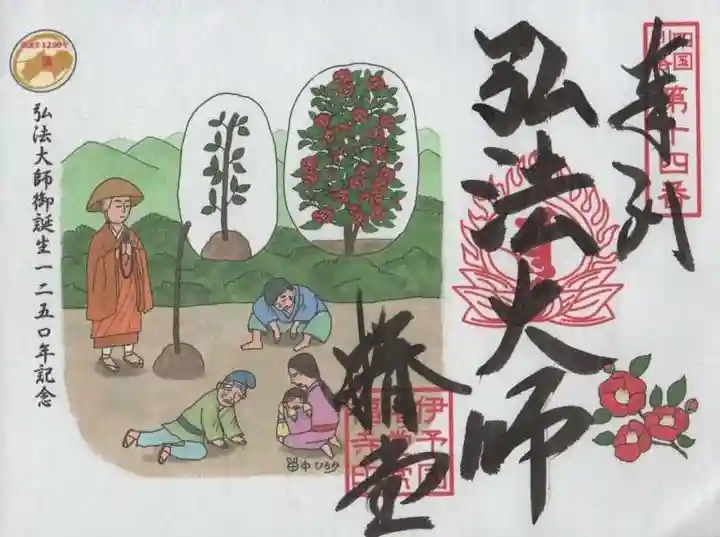 四国
別格
第十四番
奉列
弘法大師
椿堂
弘法大師御誕生一二五〇年記念
田中ひろみ